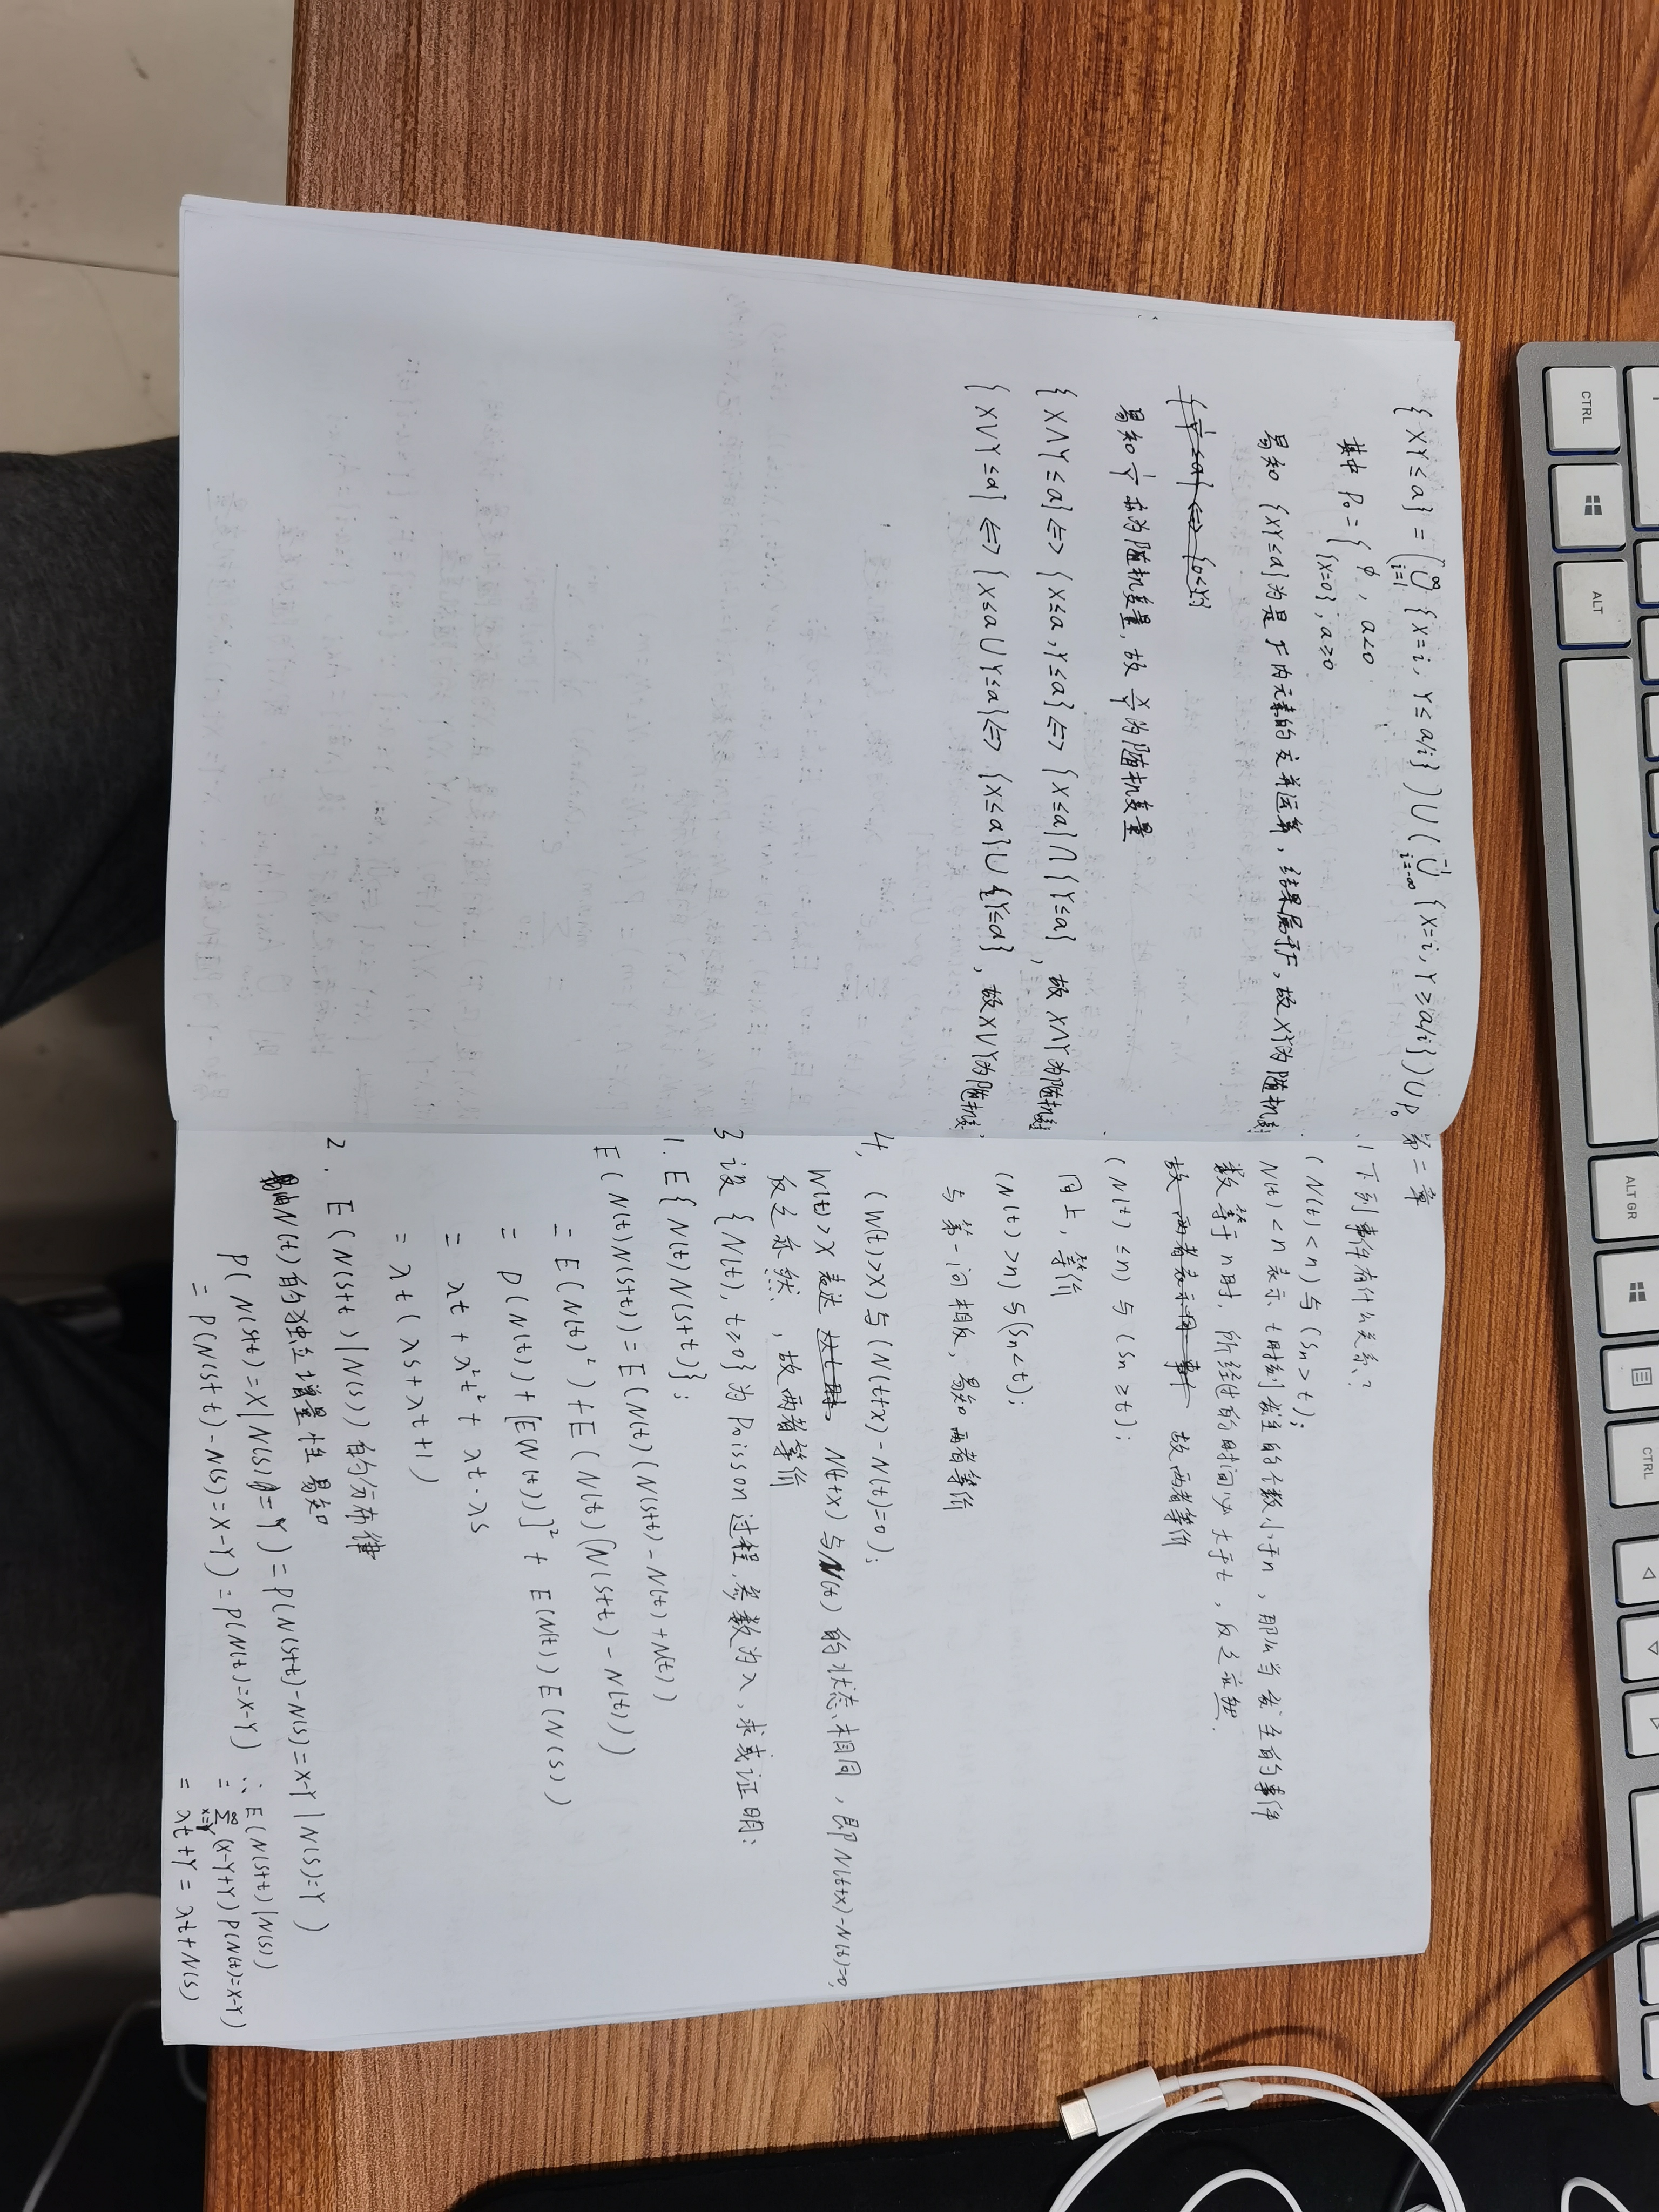 {XY≤a} = (⋃_{i=1}^{∞} {X=i, Y≤a/i}) ∪ (⋃_{i=-∞}^{-1} {X=i, Y≥a/i}) ∪ P₀
其中 P₀ = { ∅, a<0
{X=0}, a≥0
易知 {XY≤a} 为是 F 内元素的交并运算, 结果属于F, 故XY为随机变量
易知 1/Y 亦为随机变量, 故 X/Y 为随机变量
{X∧Y≤a} ⇔ {X≤a, Y≤a} ⇔ {X≤a}∩{Y≤a}, 故 X∧Y为随机变量
{X∨Y≤a} ⇔ {X≤a∪Y≤a} ⇔ {X≤a}∪{Y≤a}, 故X∨Y为随机变量
第二章
1 下列事件有什么关系?
(N(t)<n) 与 (Sn>t);
N(t)<n 表示 t时刻发生的个数小于n, 那么当发生的事件
数等于n时, 所经过的时间必大于t, 反之亦然.
故两者表示同一事件 故两者等价
(N(t)≤n) 与 (Sn≥t);
同上, 等价
(N(t)>n) 与 (Sn<t);
与第一问相反, 易知两者等价
4, (W(t)>x) 与 (N(t+x)-N(t)=0);
W(t)>x 表达 N(t+x) 与 N(t) 的状态相同, 即 N(t+x)-N(t)=0,
反之亦然, 故两者等价
3 设 {N(t), t≥0} 为 Poisson 过程, 参数为λ, 求或证明:
1. E{N(t)N(s+t)};
E(N(t)N(s+t)) = E(N(t)(N(s+t)-N(t)+N(t))
= E(N(t)²)+E(N(t)(N(s+t)-N(t))
= D(N(t))+[E(N(t))]²+E(N(t))E(N(s))
= λt+λ²t²+λt·λs
= λt(λs+λt+1)
2. E(N(s+t)|N(s)) 的分布律
由N(t)的独立增量性易知
P(N(s+t)=X|N(s)=Y) = P(N(s+t)-N(s)=X-Y|N(s)=Y)
= P(N(s+t)-N(s)=X-Y) = P(N(t)=X-Y)
∴ E(N(s+t)|N(s))
= Σ_{x=Y}^{∞} (X-Y+Y)P(N(t)=X-Y)
= λt+Y = λt+N(s)
CTRL
ALT
ALT GR
CTRL